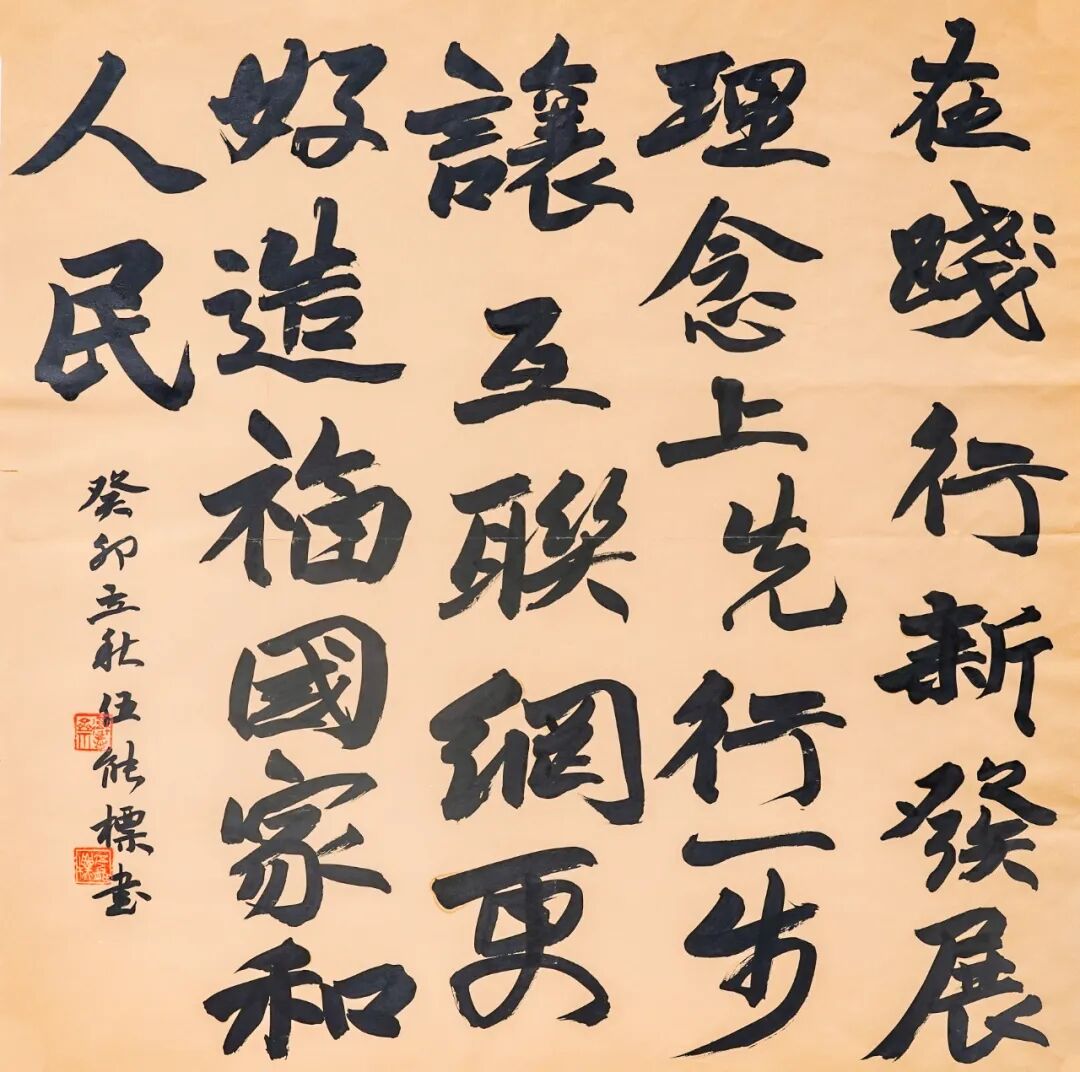 在踐行新發展
理念上先行一步
讓互聯網更
好造福國家和
人民
癸卯立秋伍能標书